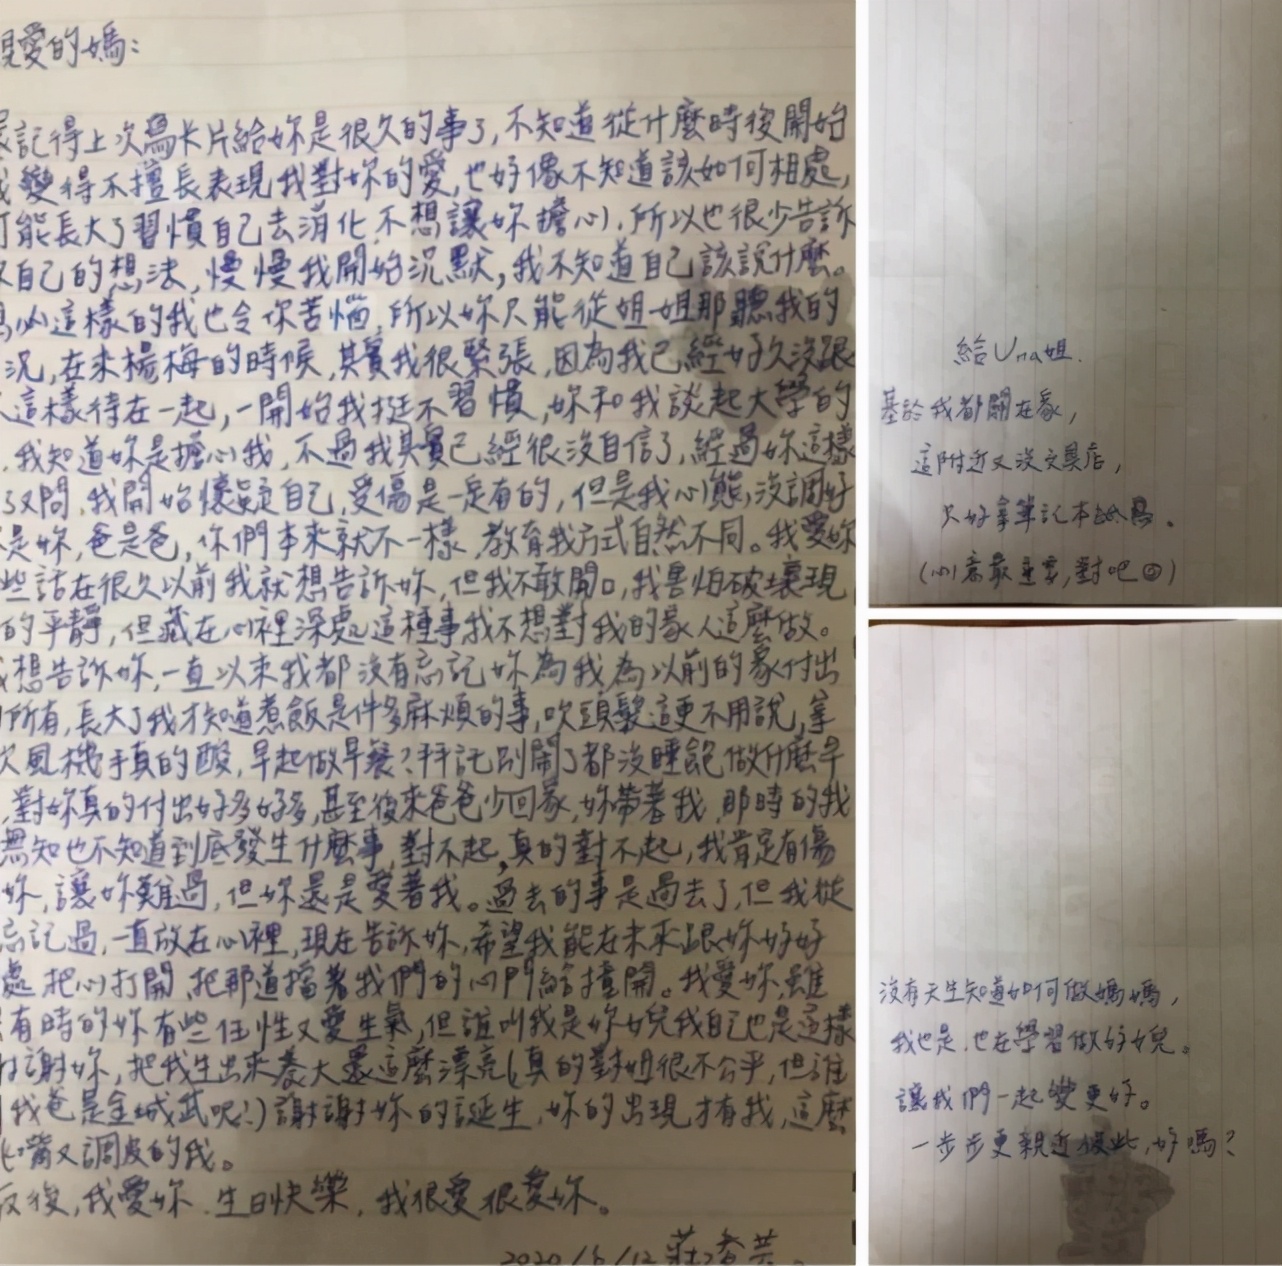 親愛的媽:
還記得上次寫卡片給妳是很久的事了,不知道從什麼時後開始
我變得不擅長表現我對妳的愛,也好像不知道該如何相處,
可能長大了習慣自己去消化,不想讓妳擔心,所以也很少告訴
妳自己的想法,慢慢我開始沉默,我不知道自己該說什麼。
這樣的我也令你苦惱,所以妳只能從姐姐那聽我的
況,在來楊梅的時候,其實我很緊張,因為我已經好久沒跟
這樣待在一起,一開始我挺不習慣,妳和我談起大學的
,我知道妳是擔心我,不過我其實已經很沒自信了,經過妳這樣
了又問,我開始懷疑自己,受傷是一定有的,但是我心態沒調好
是妳,爸是爸,你們本來就不一樣,教育我方式自然不同。我愛妳
些話在很久以前我就想告訴妳,但我不敢開口,我害怕破壞現
的平靜,但藏在心裡深處這種事我不想對我的家人這麼做。
我想告訴妳,一直以來我都沒有忘記妳為我為以前的家付出
所有,長大了我才知道煮飯是件多麻煩的事,吹頭髮這更不用說,拿
吹風機手真的酸,早起做早餐?拜託別鬧了都沒睡飽做什麼早
,對妳真的付出好多好多,甚至後來爸爸少回家,妳帶著我,那時的我
無知也不知道到底發生什麼事,對不起,真的對不起,我肯定有傷
妳,讓妳難過,但妳還是愛著我。過去的事是過去了,但我從
忘記過,一直放在心裡,現在告訴妳,希望我能在未來跟妳好好
處,把心打開,把那道擋著我們的心門給撞開。我愛妳,雖
有時的妳有些任性又愛生氣,但誰叫我是妳女兒我自己也是這樣
謝妳,把我生出來養大還這麼漂亮(真的對姐很不公平,但誰
我爸是金城武呢?)謝謝妳的誕生,妳的出現才有我,這麼
嘴又調皮的我。
後,我愛妳,生日快樂,我很愛很愛妳。
2020/6/12 莊
給Una姐.
基於我都關在家,
這附近又沒文具店,
只好拿筆記本給寫。
(心意最重要,對吧☺)
沒有天生知道如何做媽媽,
我也是,也在學習做好女兒。
讓我們一起變更好。
一步步更親近彼此,好嗎?